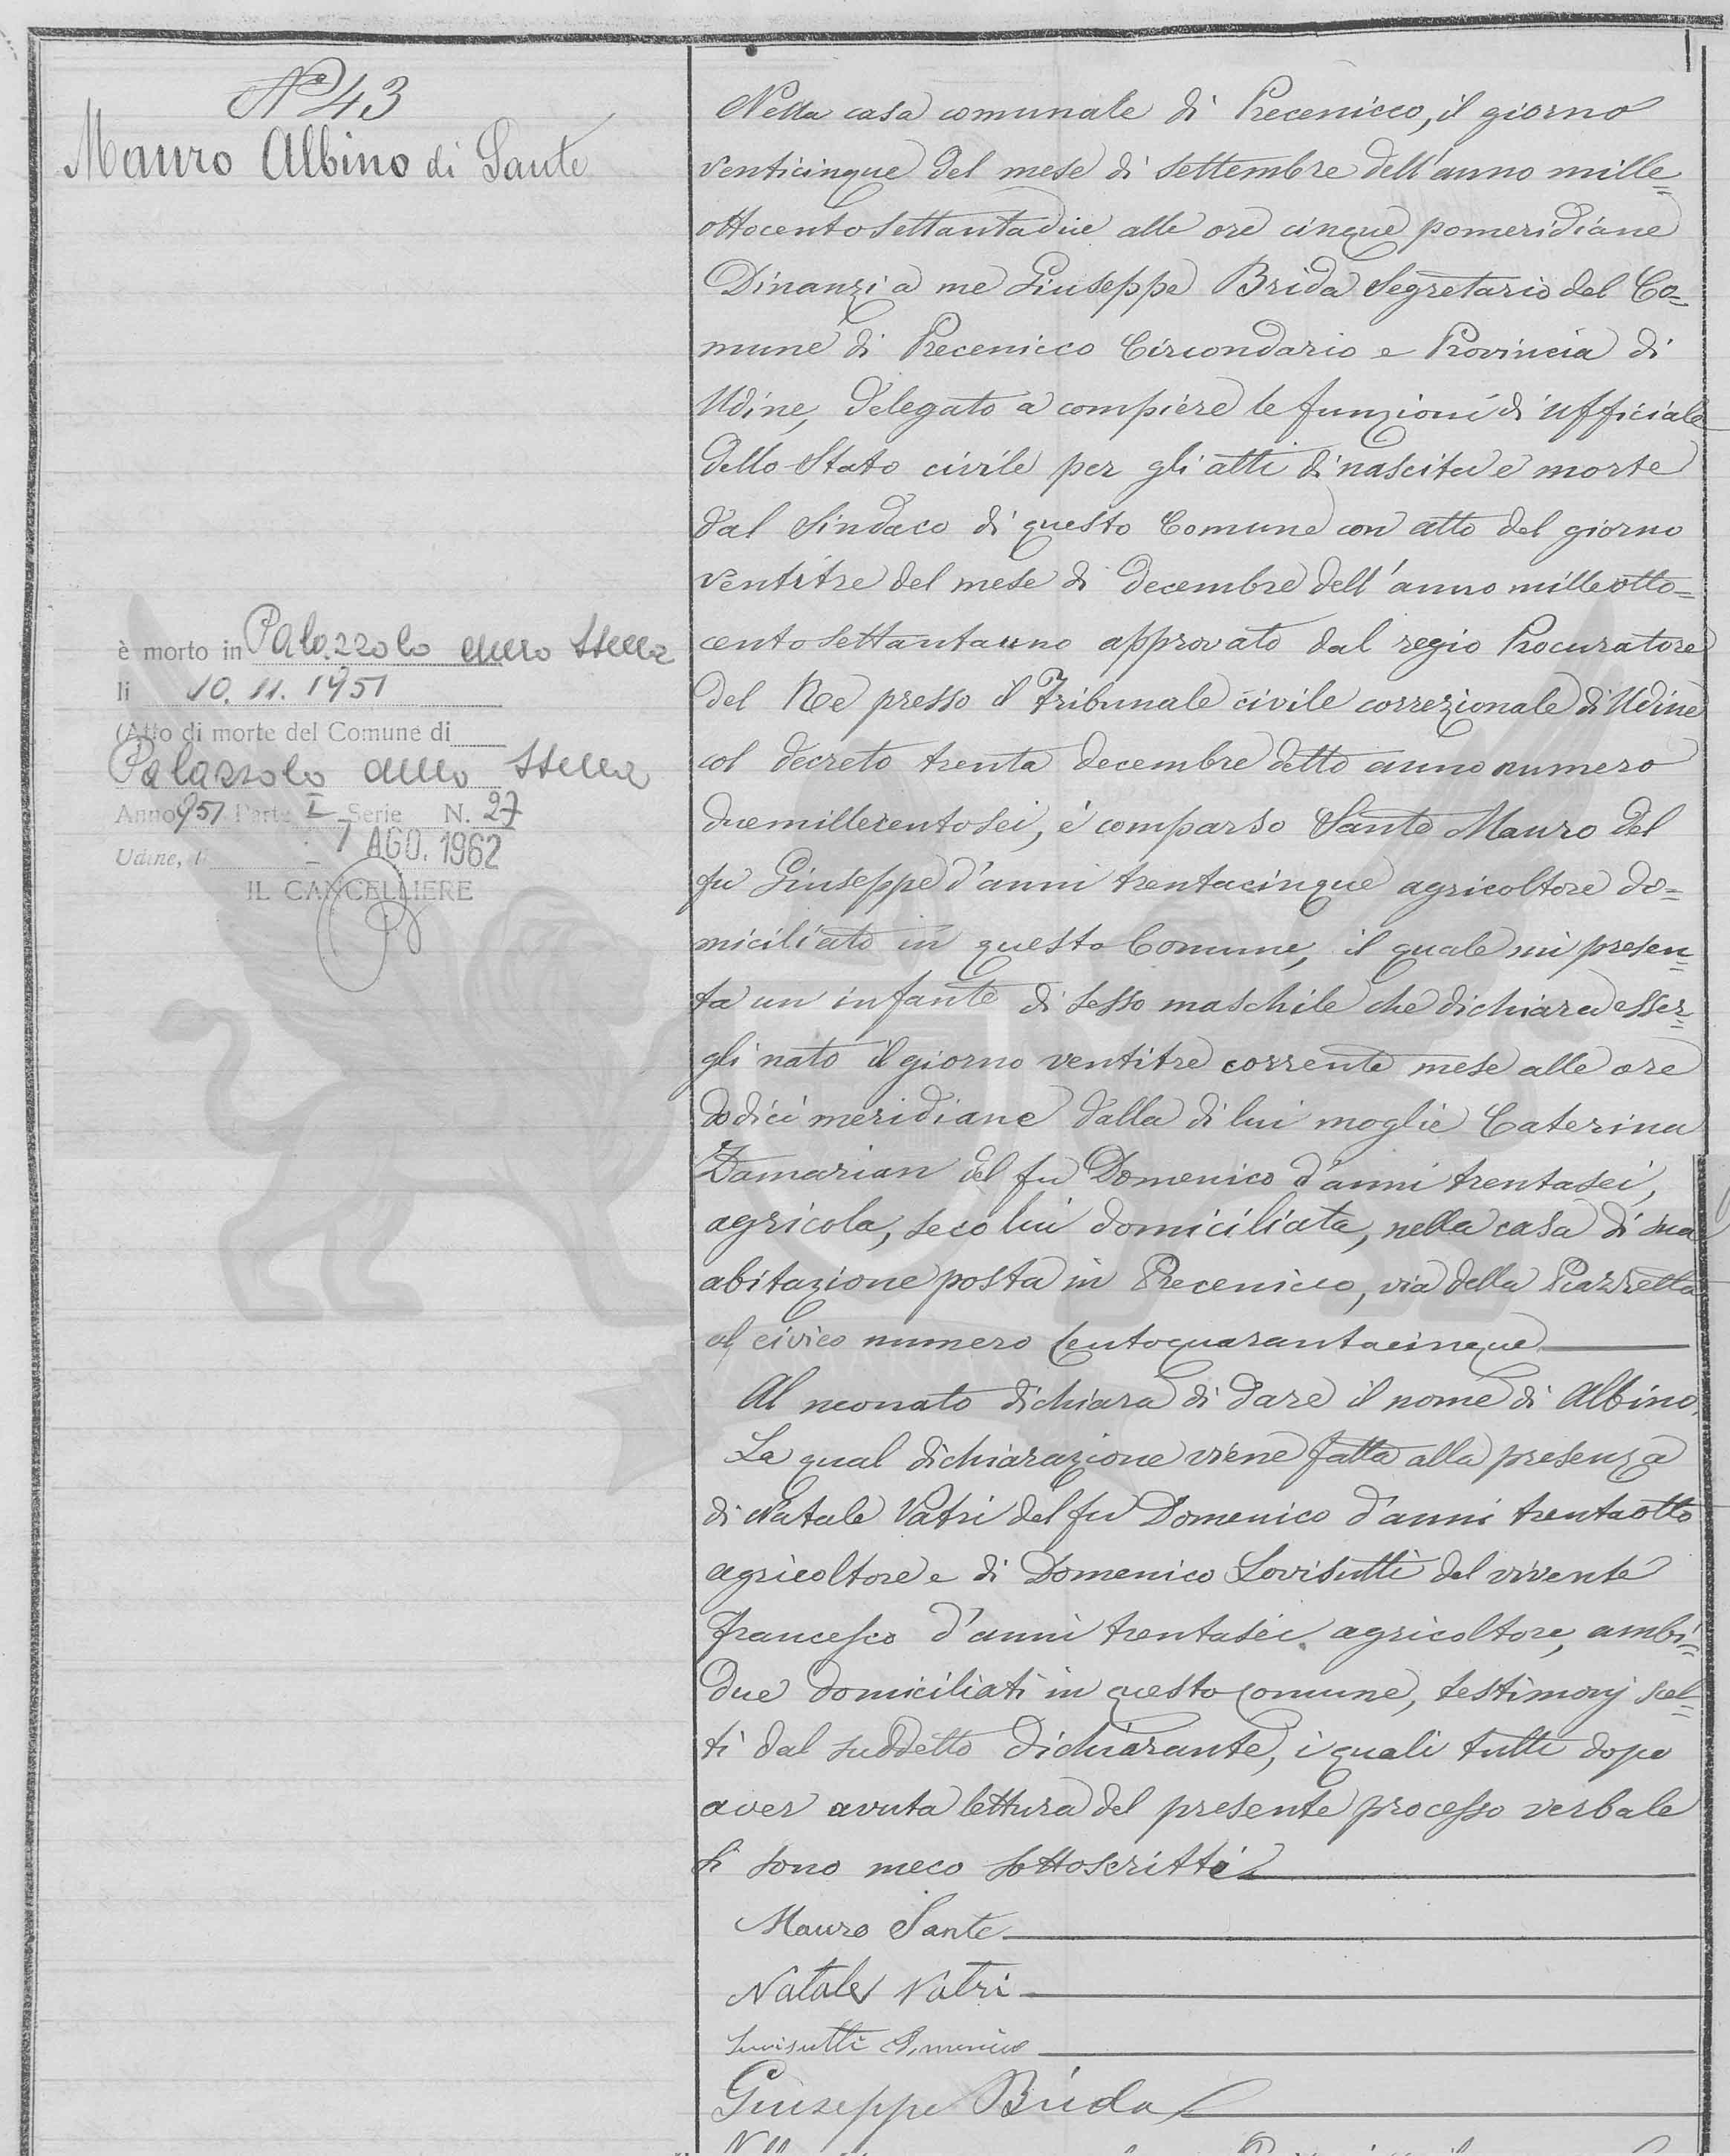 Nº 43
Mauro Albino di Sante
è morto in Palazzolo dello Stella
li 10.11.1951
(Atto di morte del Comune di
Palazzolo dello Stella
Anno 951 Parte I Serie N. 27
Udine, li 1 AGO. 1962
IL CANCELLIERE
Nella casa comunale di Precenicco, il giorno
venticinque del mese di settembre dell'anno mille=
ottocento settantadue alle ore cinque pomeridiane
Dinanzi a me Giuseppe Brida Segretario del Co=
mune di Precenicco Circondario e Provincia di
Udine, delegato a compiere le funzioni di ufficiale
dello Stato civile per gli atti di nascita e morte
dal Sindaco di questo Comune con atto del giorno
ventitre del mese di decembre dell'anno milleotto=
cento settantauno approvato dal regio Procuratore
del Re presso il Tribunale civile correzionale di Udine
col decreto trenta decembre detto anno numero
duemillecentosei, è comparso Sante Mauro del
fu Giuseppe d'anni trentacinque agricoltore do=
miciliato in questo Comune, il quale mi presen=
ta un infante di sesso maschile che dichiara esser=
gli nato il giorno ventitre corrente mese alle ore
dodici meridiane dalla di lui moglie Caterina
Zamarian del fu Domenico d'anni trentasei,
agricola, seco lui domiciliata, nella casa di sua
abitazione posta in Precenicco, via della Piazzetta
al civico numero centoquarantacinque
Al neonato dichiara di dare il nome di Albino.
La qual dichiarazione viene fatta alla presenza
di Natale Vatri del fu Domenico d'anni trentaotto
agricoltore e di Domenico Lovisutti del vivente
Francesco d'anni trentasei agricoltore, ambi=
due domiciliati in questo comune, testimonj scel=
ti dal suddetto dichiarante, i quali tutti dopo
aver avuta lettura del presente processo verbale
si sono meco sottoscritti
Mauro Sante
Natale Vatri
Luvisutti Domenico
Giuseppe Brida